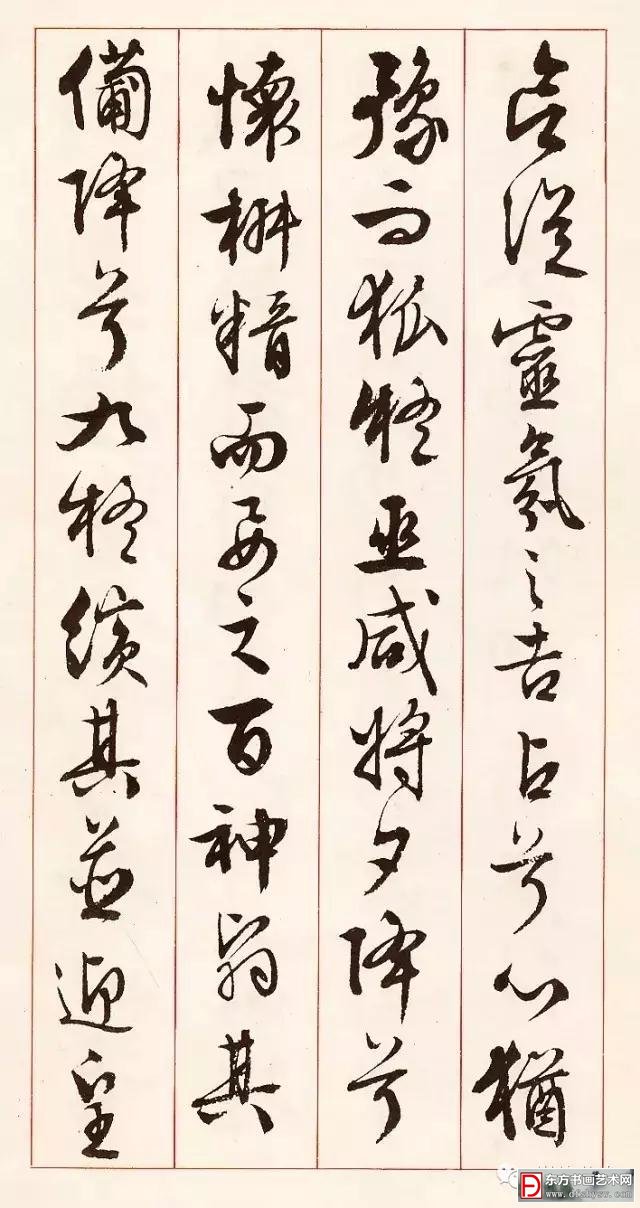 欲從靈氛之吉占兮心猶
豫而狐疑巫咸將夕降兮
懷椒糈而要之百神翳其
備降兮九疑繽其並迎皇
东方书画艺术网